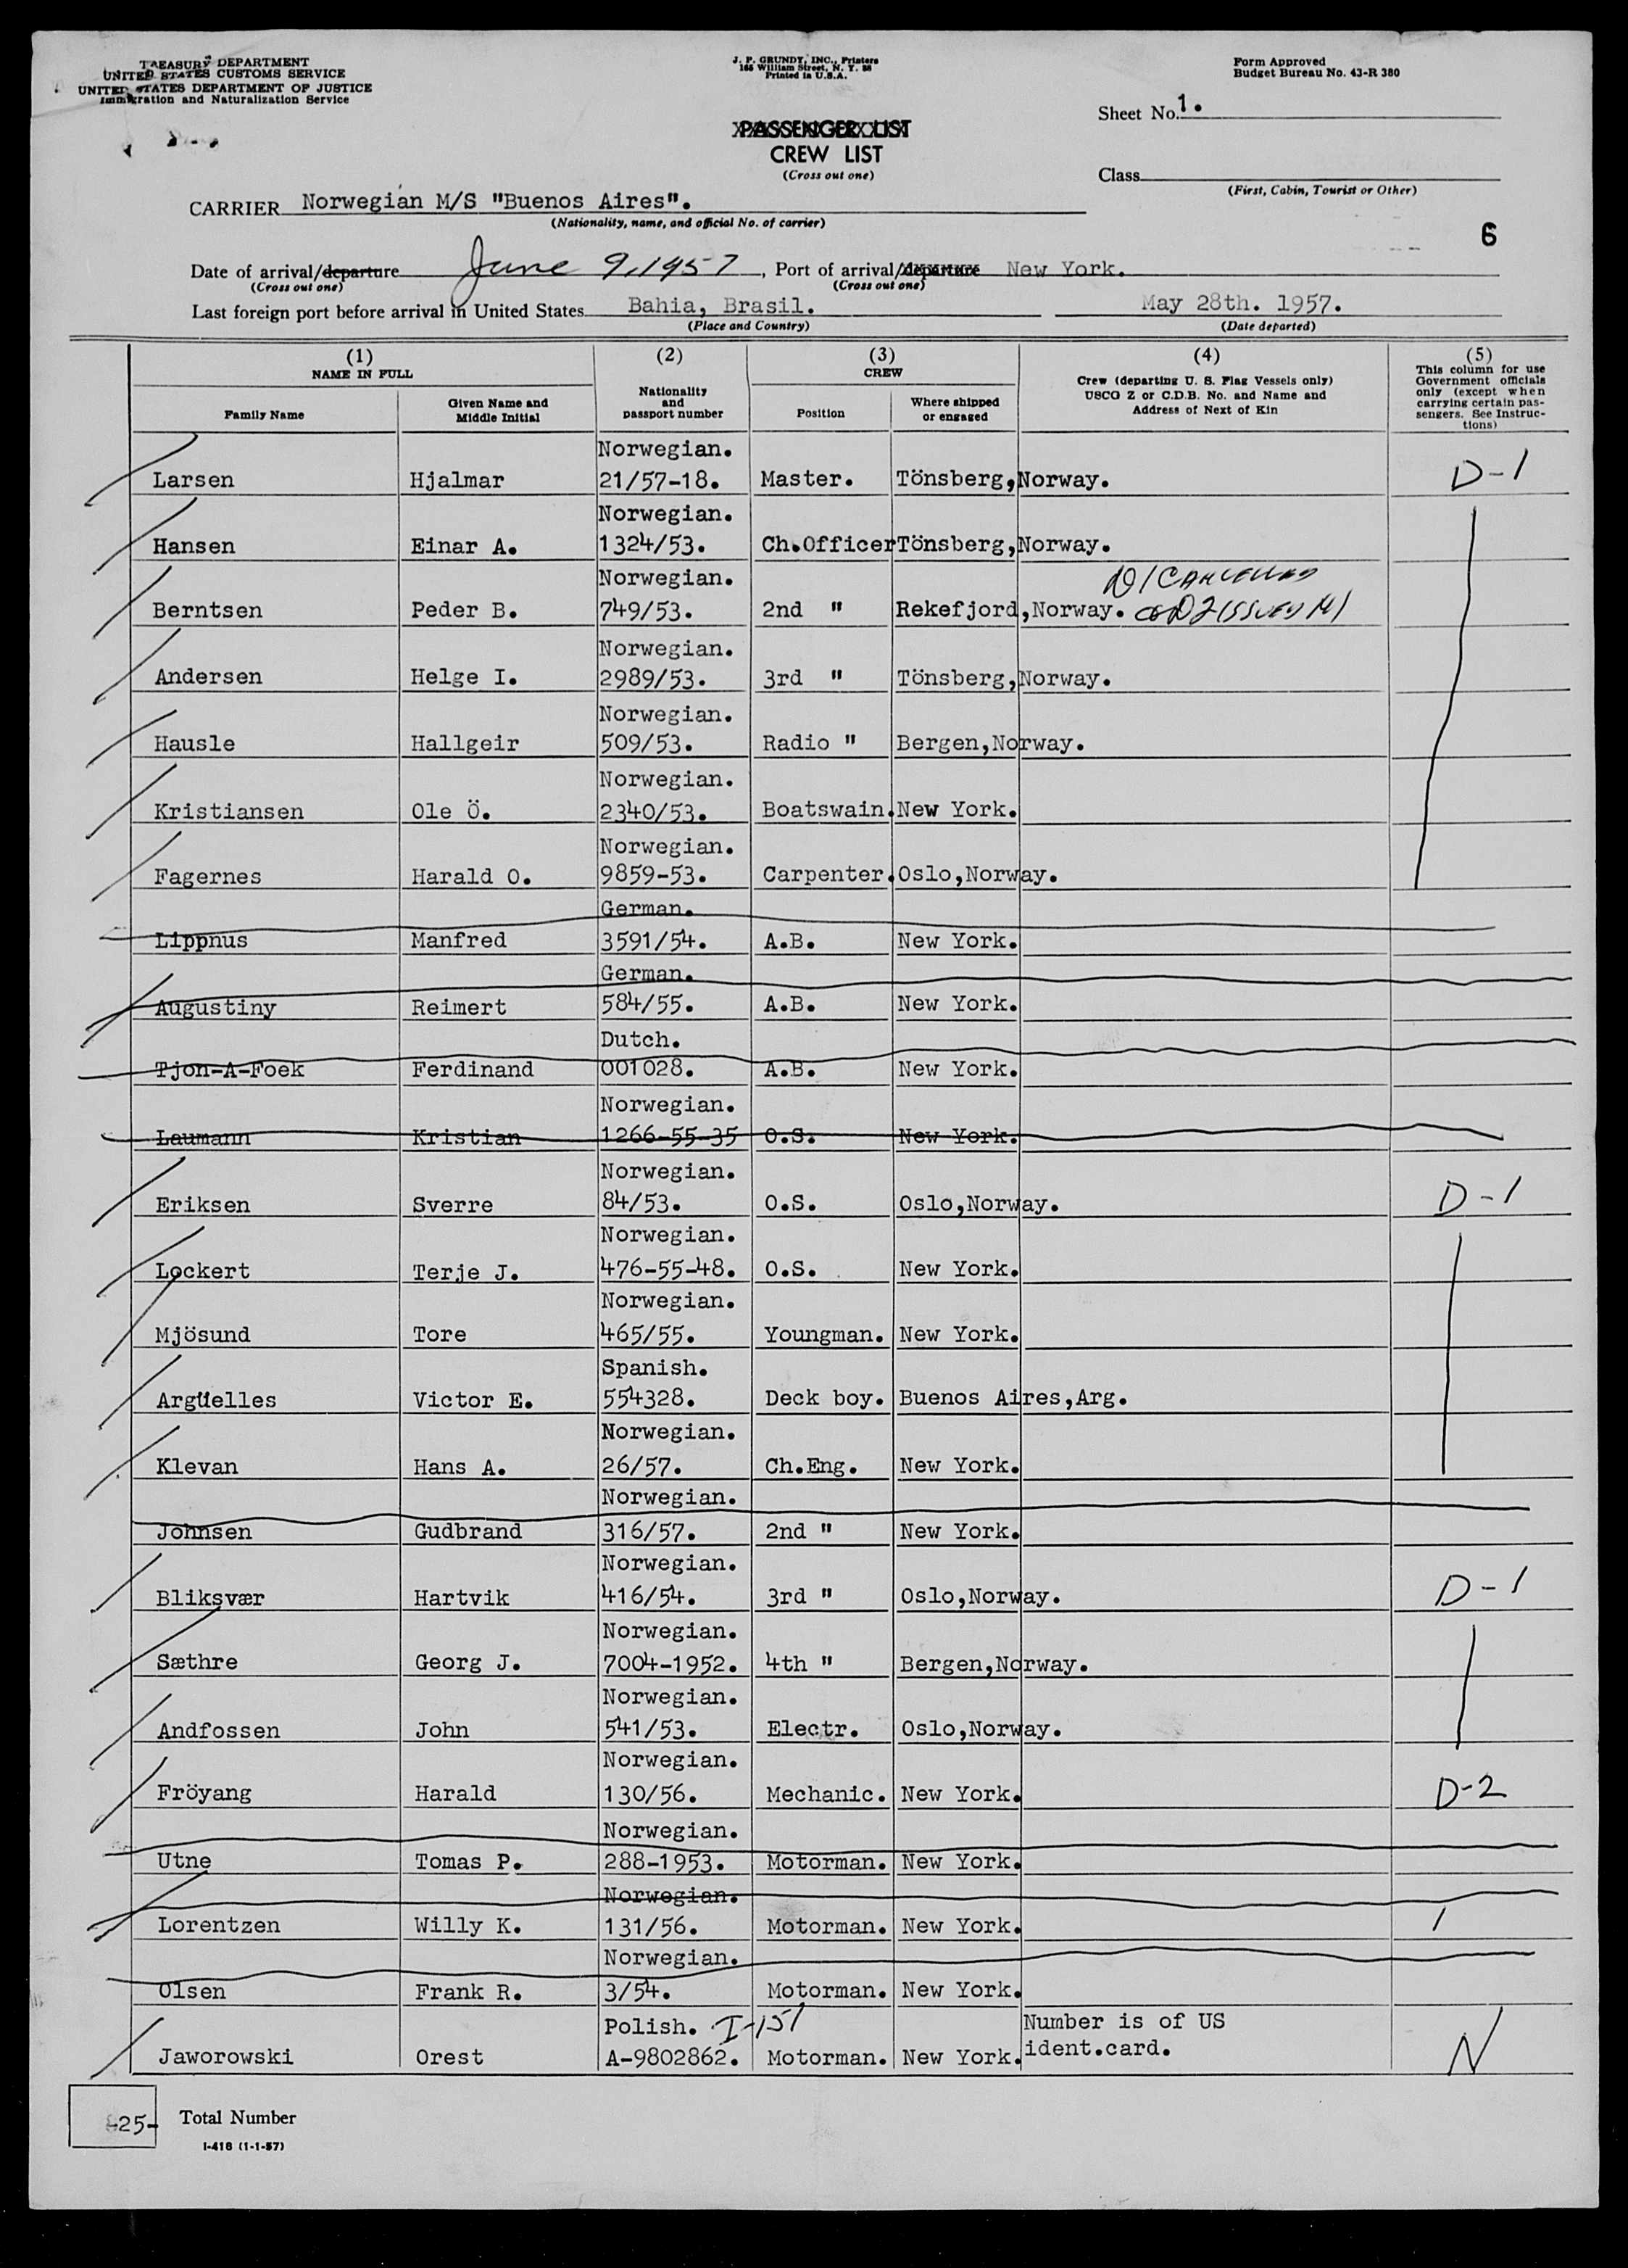 TREASURY DEPARTMENT
UNITED STATES CUSTOMS SERVICE
UNITED STATES DEPARTMENT OF JUSTICE
Immigration and Naturalization Service
J. P. GRUNDY, INC., Printers
165 William Street, N. Y. 38
Printed in U.S.A.
Form Approved
Budget Bureau No. 43-R 380
Sheet No. 1.
PASSENGER LIST
CREW LIST
(Cross out one)
Class
(First, Cabin, Tourist or Other)
CARRIER Norwegian M/S "Buenos Aires".
(Nationality, name, and official No. of carrier)
6
Date of arrival/departure June 9, 1957, Port of arrival/departure New York.
(Cross out one) (Cross out one)
Last foreign port before arrival in United States Bahia, Brasil. May 28th. 1957.
(Place and Country) (Date departed)
(1) (2) (3) (4) (5)
NAME IN FULL
Family Name
Given Name and Middle Initial
Nationality and passport number
CREW
Position
Where shipped or engaged
Crew (departing U. S. Flag Vessels only)
USCG Z or C.D.B. No. and Name and
Address of Next of Kin
This column for use
Government officials
only (except when
carrying certain pas-
sengers. See Instruc-
tions)
Norwegian.
Larsen Hjalmar 21/57-18. Master. Tönsberg,Norway. D-1
Norwegian.
Hansen Einar A. 1324/53. Ch.Officer Tönsberg,Norway.
Norwegian. D/1 CANCELLED
Berntsen Peder B. 749/53. 2nd " Rekefjord,Norway. D2 ISSUED
Norwegian.
Andersen Helge I. 2989/53. 3rd " Tönsberg,Norway.
Norwegian.
Hausle Hallgeir 509/53. Radio " Bergen,Norway.
Norwegian.
Kristiansen Ole Ö. 2340/53. Boatswain. New York.
Norwegian.
Fagernes Harald O. 9859-53. Carpenter. Oslo,Norway.
German.
Lippnus Manfred 3591/54. A.B. New York.
German.
Augustiny Reimert 584/55. A.B. New York.
Dutch.
Tjon-A-Foek Ferdinand 001028. A.B. New York.
Norwegian.
Laumann Kristian 1266-55-35 O.S. New York.
Norwegian.
Eriksen Sverre 84/53. O.S. Oslo,Norway. D-1
Norwegian.
Lockert Terje J. 476-55-48. O.S. New York.
Norwegian.
Mjösund Tore 465/55. Youngman. New York.
Spanish.
Argüelles Victor E. 554328. Deck boy. Buenos Aires,Arg.
Norwegian.
Klevan Hans A. 26/57. Ch.Eng. New York.
Norwegian.
Johnsen Gudbrand 316/57. 2nd " New York.
Norwegian.
Bliksvær Hartvik 416/54. 3rd " Oslo,Norway. D-1
Norwegian.
Sæthre Georg J. 7004-1952. 4th " Bergen,Norway.
Norwegian.
Andfossen John 541/53. Electr. Oslo,Norway.
Norwegian.
Fröyang Harald 130/56. Mechanic. New York. D-2
Norwegian.
Utne Tomas P. 288-1953. Motorman. New York.
Norwegian.
Lorentzen Willy K. 131/56. Motorman. New York.
Norwegian.
Olsen Frank R. 3/54. Motorman. New York.
Polish. I-151 Number is of US
Jaworowski Orest A-9802862. Motorman. New York. ident.card. N
-25- Total Number
I-418 (1-1-57)